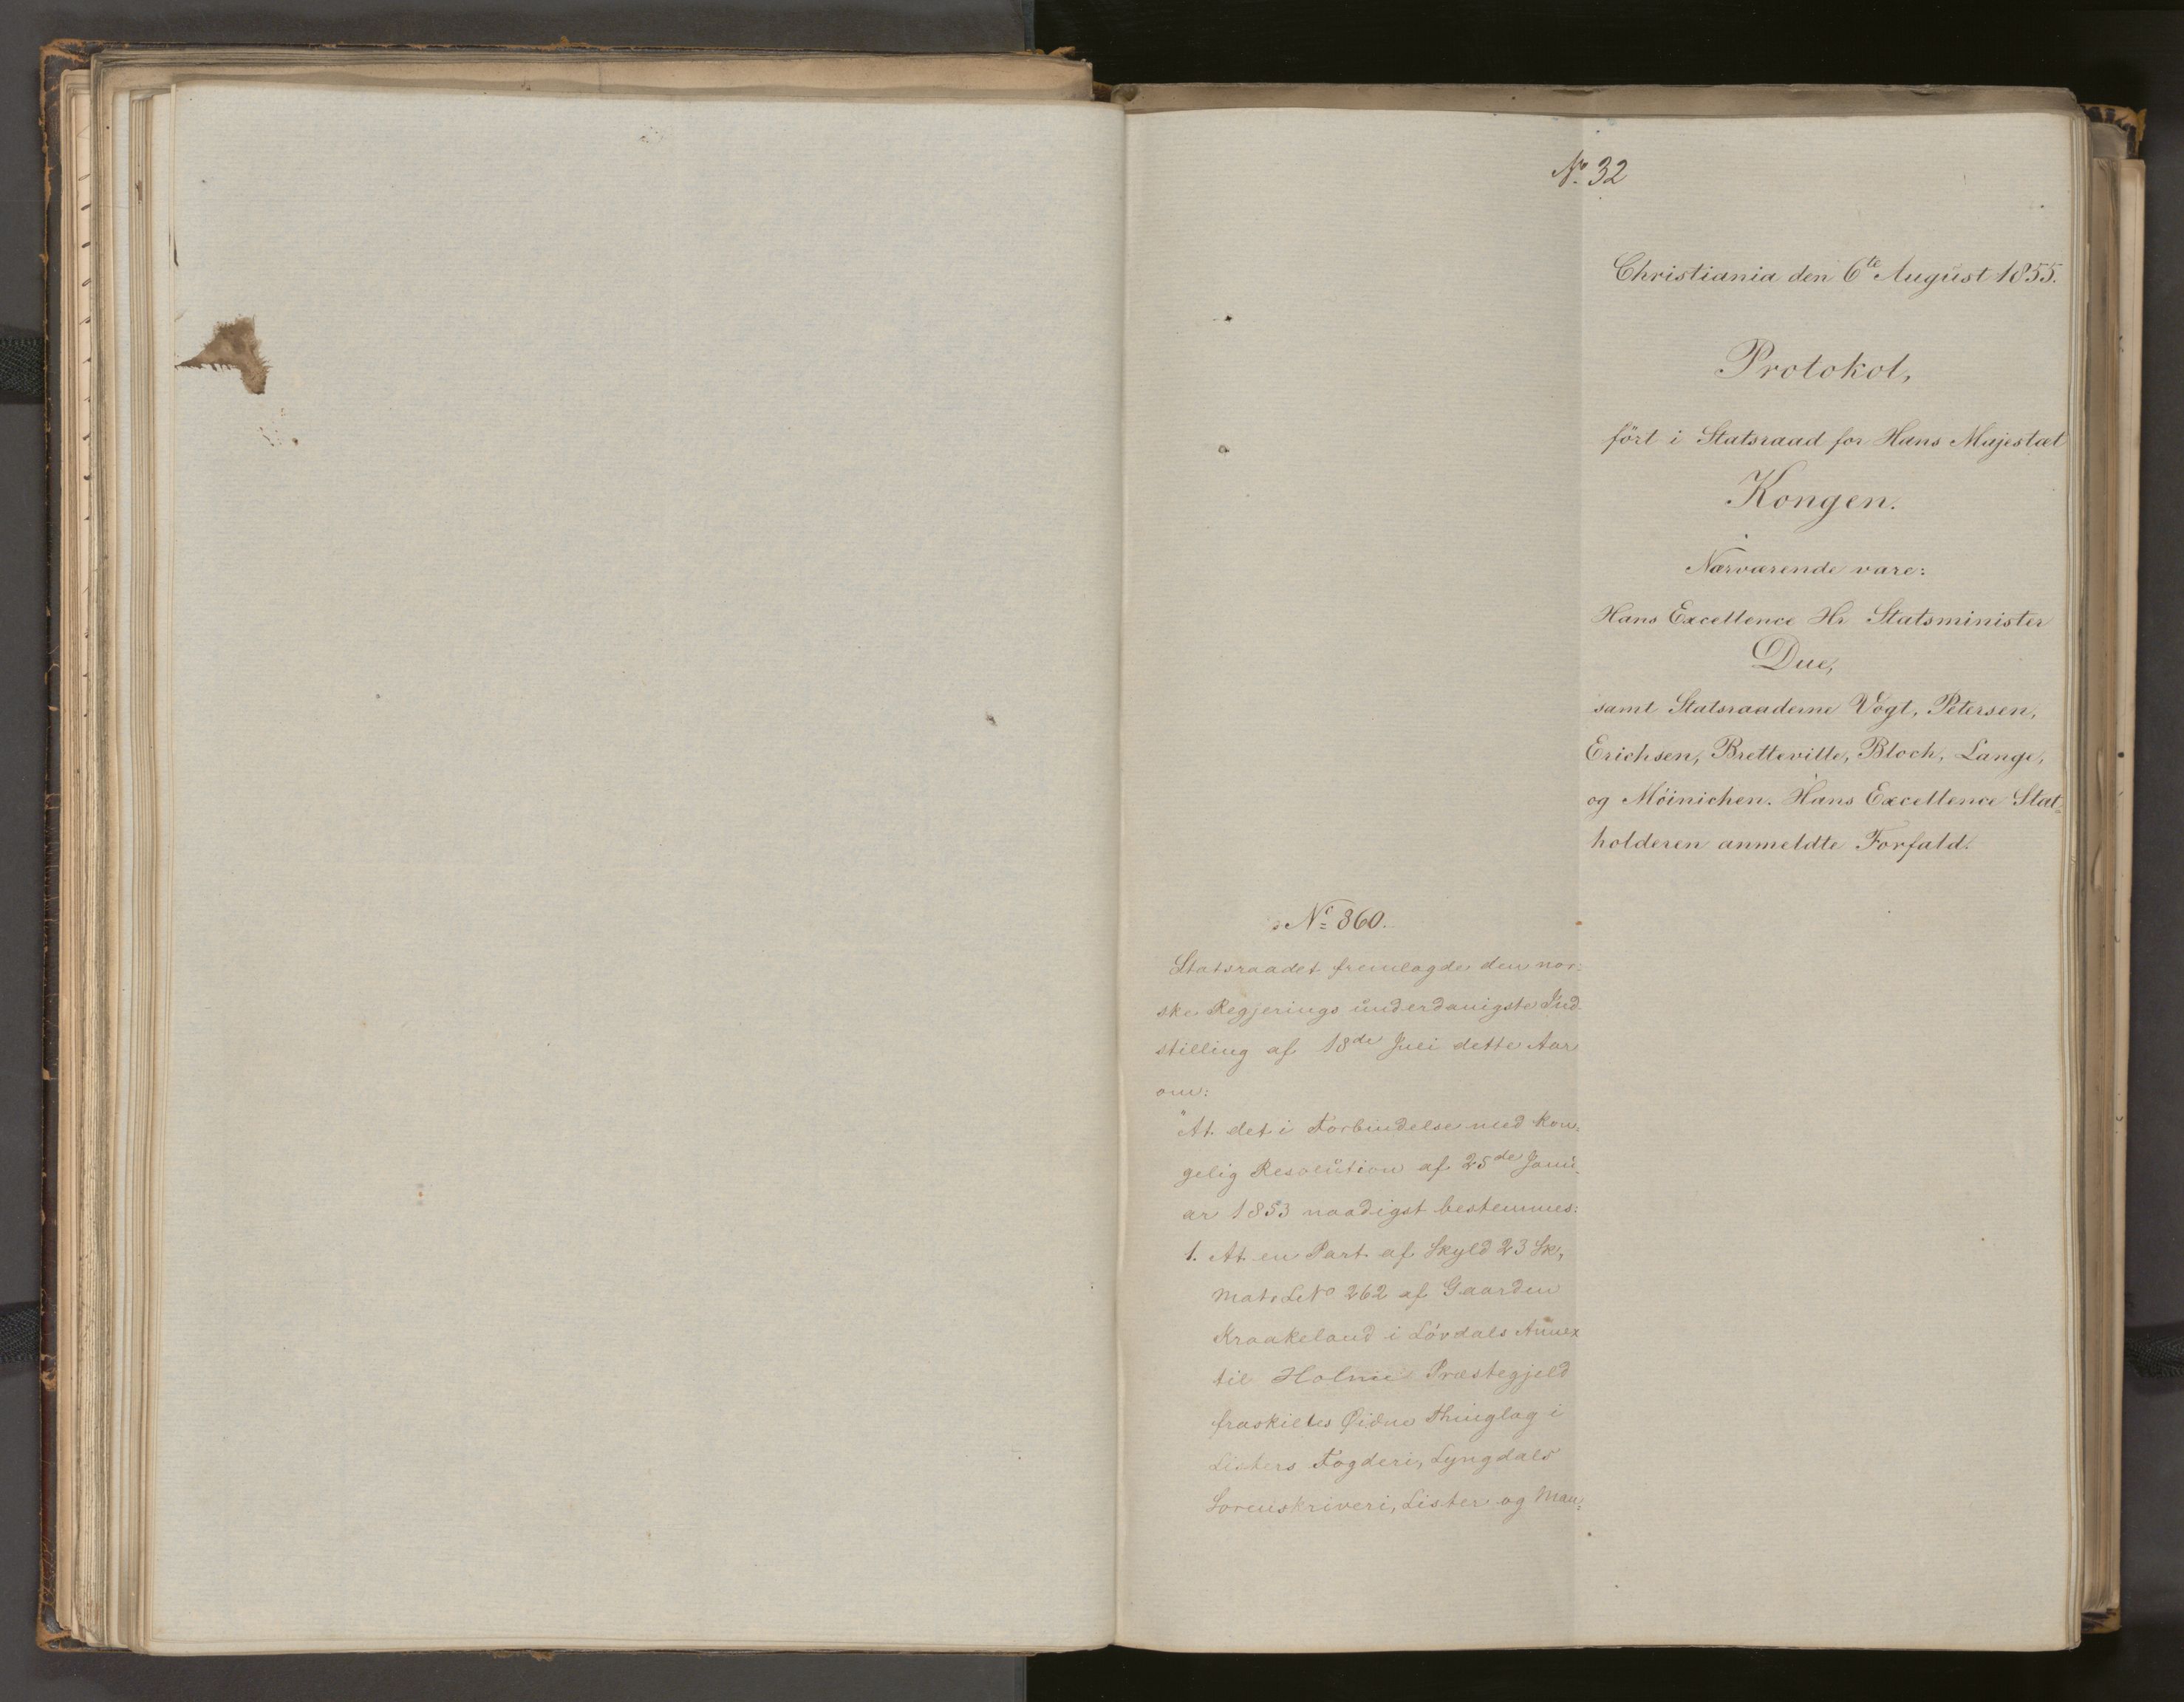 No. 32
Christiania den 6te August 1855.
Protokol,
ført i Statsraad for Hans Majestæt
Kongen.
Nærværende vare:
Hans Excellence Hr Statsminister
Due,
samt Statsraaderne Vogt, Petersen,
Erichsen, Bretteville, Bloch, Lange,
og Möinichen. Hans Excellence Stat=
holderen anmeldte Forfald.
No 860.
Statsraadet fremlagde den nor=
ske Regjerings underdanigste Ind-
stilling af 18de Juli dette Aar
om:
"At det i Forbindelse med Kon=
gelig Resolution af 25de Janu-
ar 1853 naadigst bestemmes:
1. At en Part af Skyld 23 Sk,
Mat. LNo 262 af Gaarden
Kraakeland i Lövdals Annex
til Holme Præstegjeld
fraskilles Øidne Thinglag i
Listers Fogderi, Lyngdals
Sorenskriveri, Lister og Man=